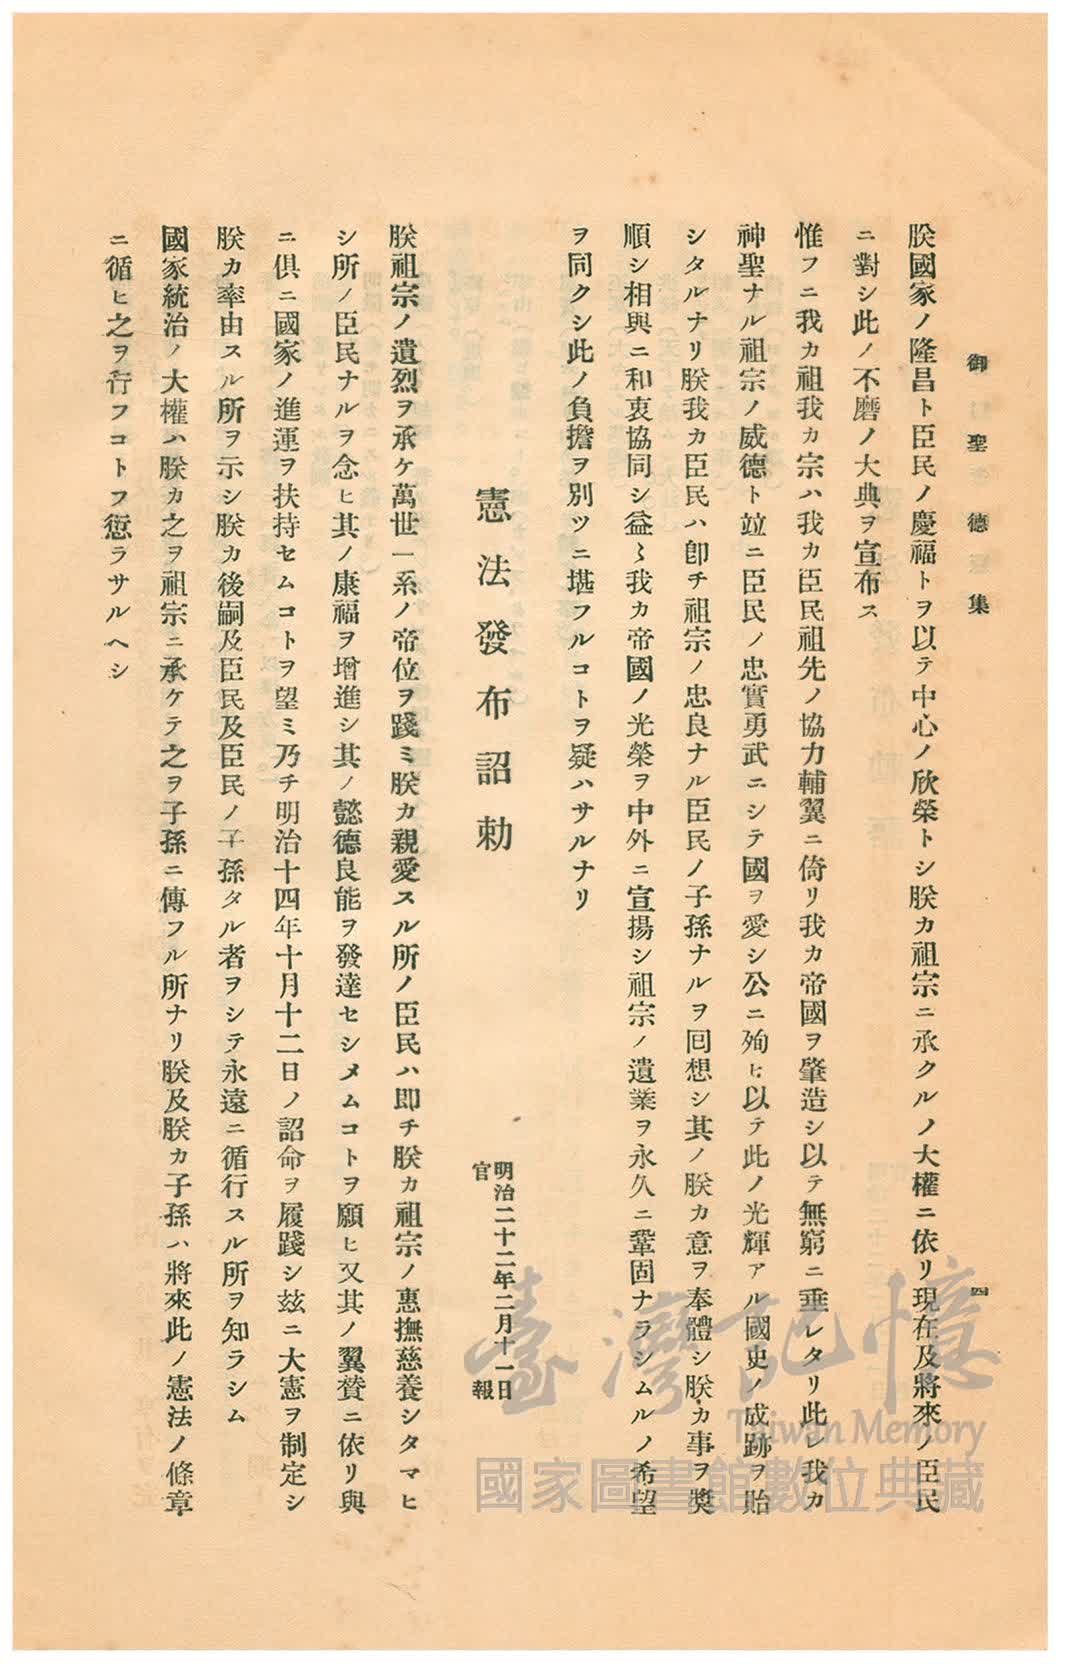 御聖德集
四
朕國家ノ隆昌ト臣民ノ慶福トヲ以テ中心ノ欣榮トシ朕カ祖宗ニ承クルノ大權ニ依リ現在及將來ノ臣民
ニ對シ此ノ不磨ノ大典ヲ宣布ス
惟フニ我カ祖我カ宗ハ我カ臣民祖先ノ協力輔翼ニ倚リ我カ帝國ヲ肇造シ以テ無窮ニ垂レタリ此レ我カ
神聖ナル祖宗ノ威德ト竝ニ臣民ノ忠實勇武ニシテ國ヲ愛シ公ニ殉ヒ以テ此ノ光輝アル國史ノ成跡ヲ貽
シタルナリ朕我カ臣民ハ卽チ祖宗ノ忠良ナル臣民ノ子孫ナルヲ囘想シ其ノ朕カ意ヲ奉體シ朕カ事ヲ奬
順シ相與ニ和衷協同シ益〻我カ帝國ノ光榮ヲ中外ニ宣揚シ祖宗ノ遺業ヲ永久ニ鞏固ナラシムルノ希望
ヲ同クシ此ノ負擔ヲ別ツニ堪フルコトヲ疑ハサルナリ
憲法發布詔勅
明治二十二年二月十一日
官報
朕祖宗ノ遺烈ヲ承ケ萬世一系ノ帝位ヲ踐ミ朕カ親愛スル所ノ臣民ハ卽チ朕カ祖宗ノ惠撫慈養シタマヒ
シ所ノ臣民ナルヲ念ヒ其ノ康福ヲ增進シ其ノ懿德良能ヲ發達セシメムコトヲ願ヒ又其ノ翼贊ニ依リ與
ニ俱ニ國家ノ進運ヲ扶持セムコトヲ望ミ乃チ明治十四年十月十二日ノ詔命ヲ履踐シ玆ニ大憲ヲ制定シ
朕カ率由スル所ヲ示シ朕カ後嗣及臣民及臣民ノ子孫タル者ヲシテ永遠ニ循行スル所ヲ知ラシム
國家統治ノ大權ハ朕カ之ヲ祖宗ニ承ケテ之ヲ子孫ニ傳フル所ナリ朕及朕カ子孫ハ將來此ノ憲法ノ條章
ニ循ヒ之ヲ行フコトヲ愆ラサルヘシ
臺灣記憶
Taiwan Memory
國家圖書館數位典藏